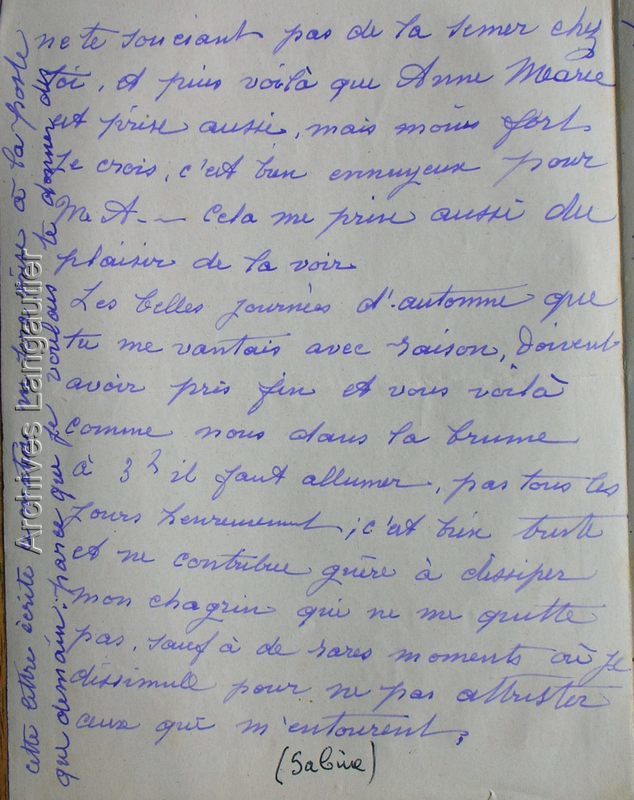 ne te souciant pas de la semer chez
toi, et puis voilà que Anne Marie
est prise aussi, mais moins fort
je crois, c'est bien ennuyeux pour
M. A-- Cela me prive aussi du
plaisir de la voir
Les belles journées d'automne que
tu me vantais avec raison, doivent
avoir pris fin et vous voilà
comme nous dans la brume
à 3 h il faut allumer, pas tous les
jours heureusement; c'est bien triste
et ne contribue guère à dissiper
mon chagrin qui ne me quitte
pas, sauf à de rares moments où je
dissimule pour ne pas attrister
ceux qui m'entourent.
(Sabine)
cette lettre écrite à la poste
que demain: parce que je voulais te donner des
Archives Langautier